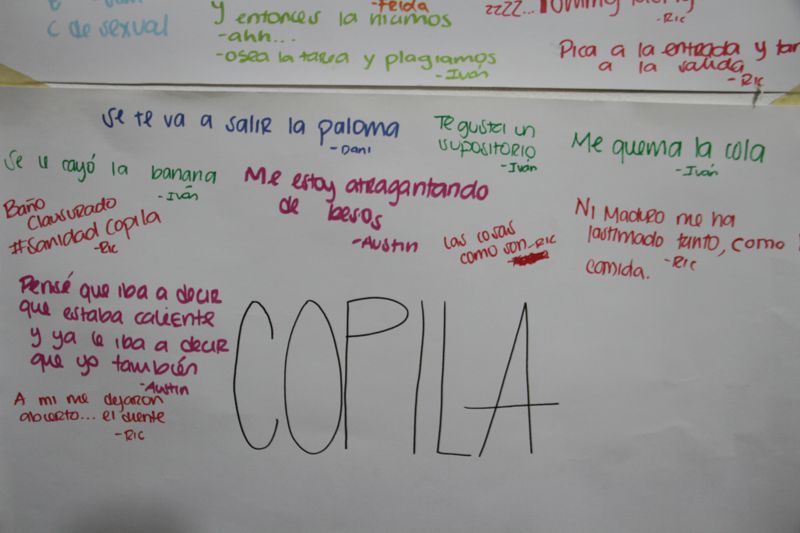 C de sexual
-Feida
y entonces la hicimos
-ahh...
-osea la tarea y plagiamos
-Iván
zzzz...
-Ric
Pica a la entrada y tam
a la salida
-Ric
Se te va a salir la paloma
-Dani
Te gusta un
supositorio
-Iván
Me quema la cola
-Iván
Se le cayó la banana
-Iván
Me estoy atragantando
de besos
-Austin
Baño
Clausurado
#Sanidad copila
-Ric
Las cosas
como son -Ric
Ni Maduro me ha
lastimado tanto, como
comida.
-Ric
Pensé que iba a decir
que estaba caliente
y ya le iba a decir
que yo también
-Austin
A mi me dejaron
abierto... el diente
-Ric
COPILA